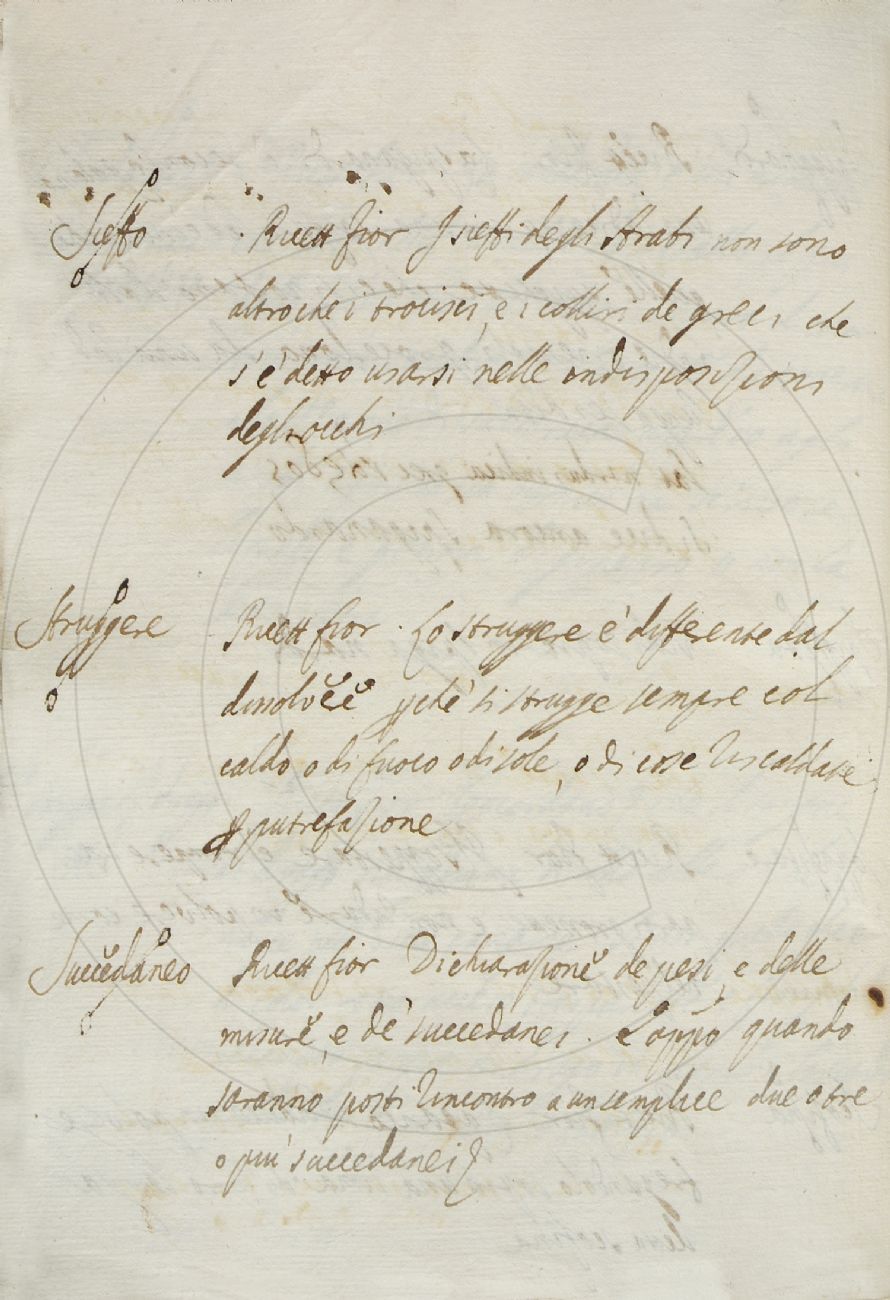 Sieffo Ricett fior I sieffi degli Arabi non sono
altro che i trocisci, e i colliri de greci che
s'è detto usarsi nelle indisposizioni
degli occhi
Struggere Ricett fior. Lo struggere è differente dal
dissolvĕĕ ꝑchè si strugge sempre col
caldo o di fuoco o di sole, o di cose riscaldate
ꝑ putrefazione
Succedaneo Ricett fior Dichiarazione de pesi, e delle
misure, e de' succedanei. E appo quando
saranno posti rincontro a un semplice due o tre
o più succedanei